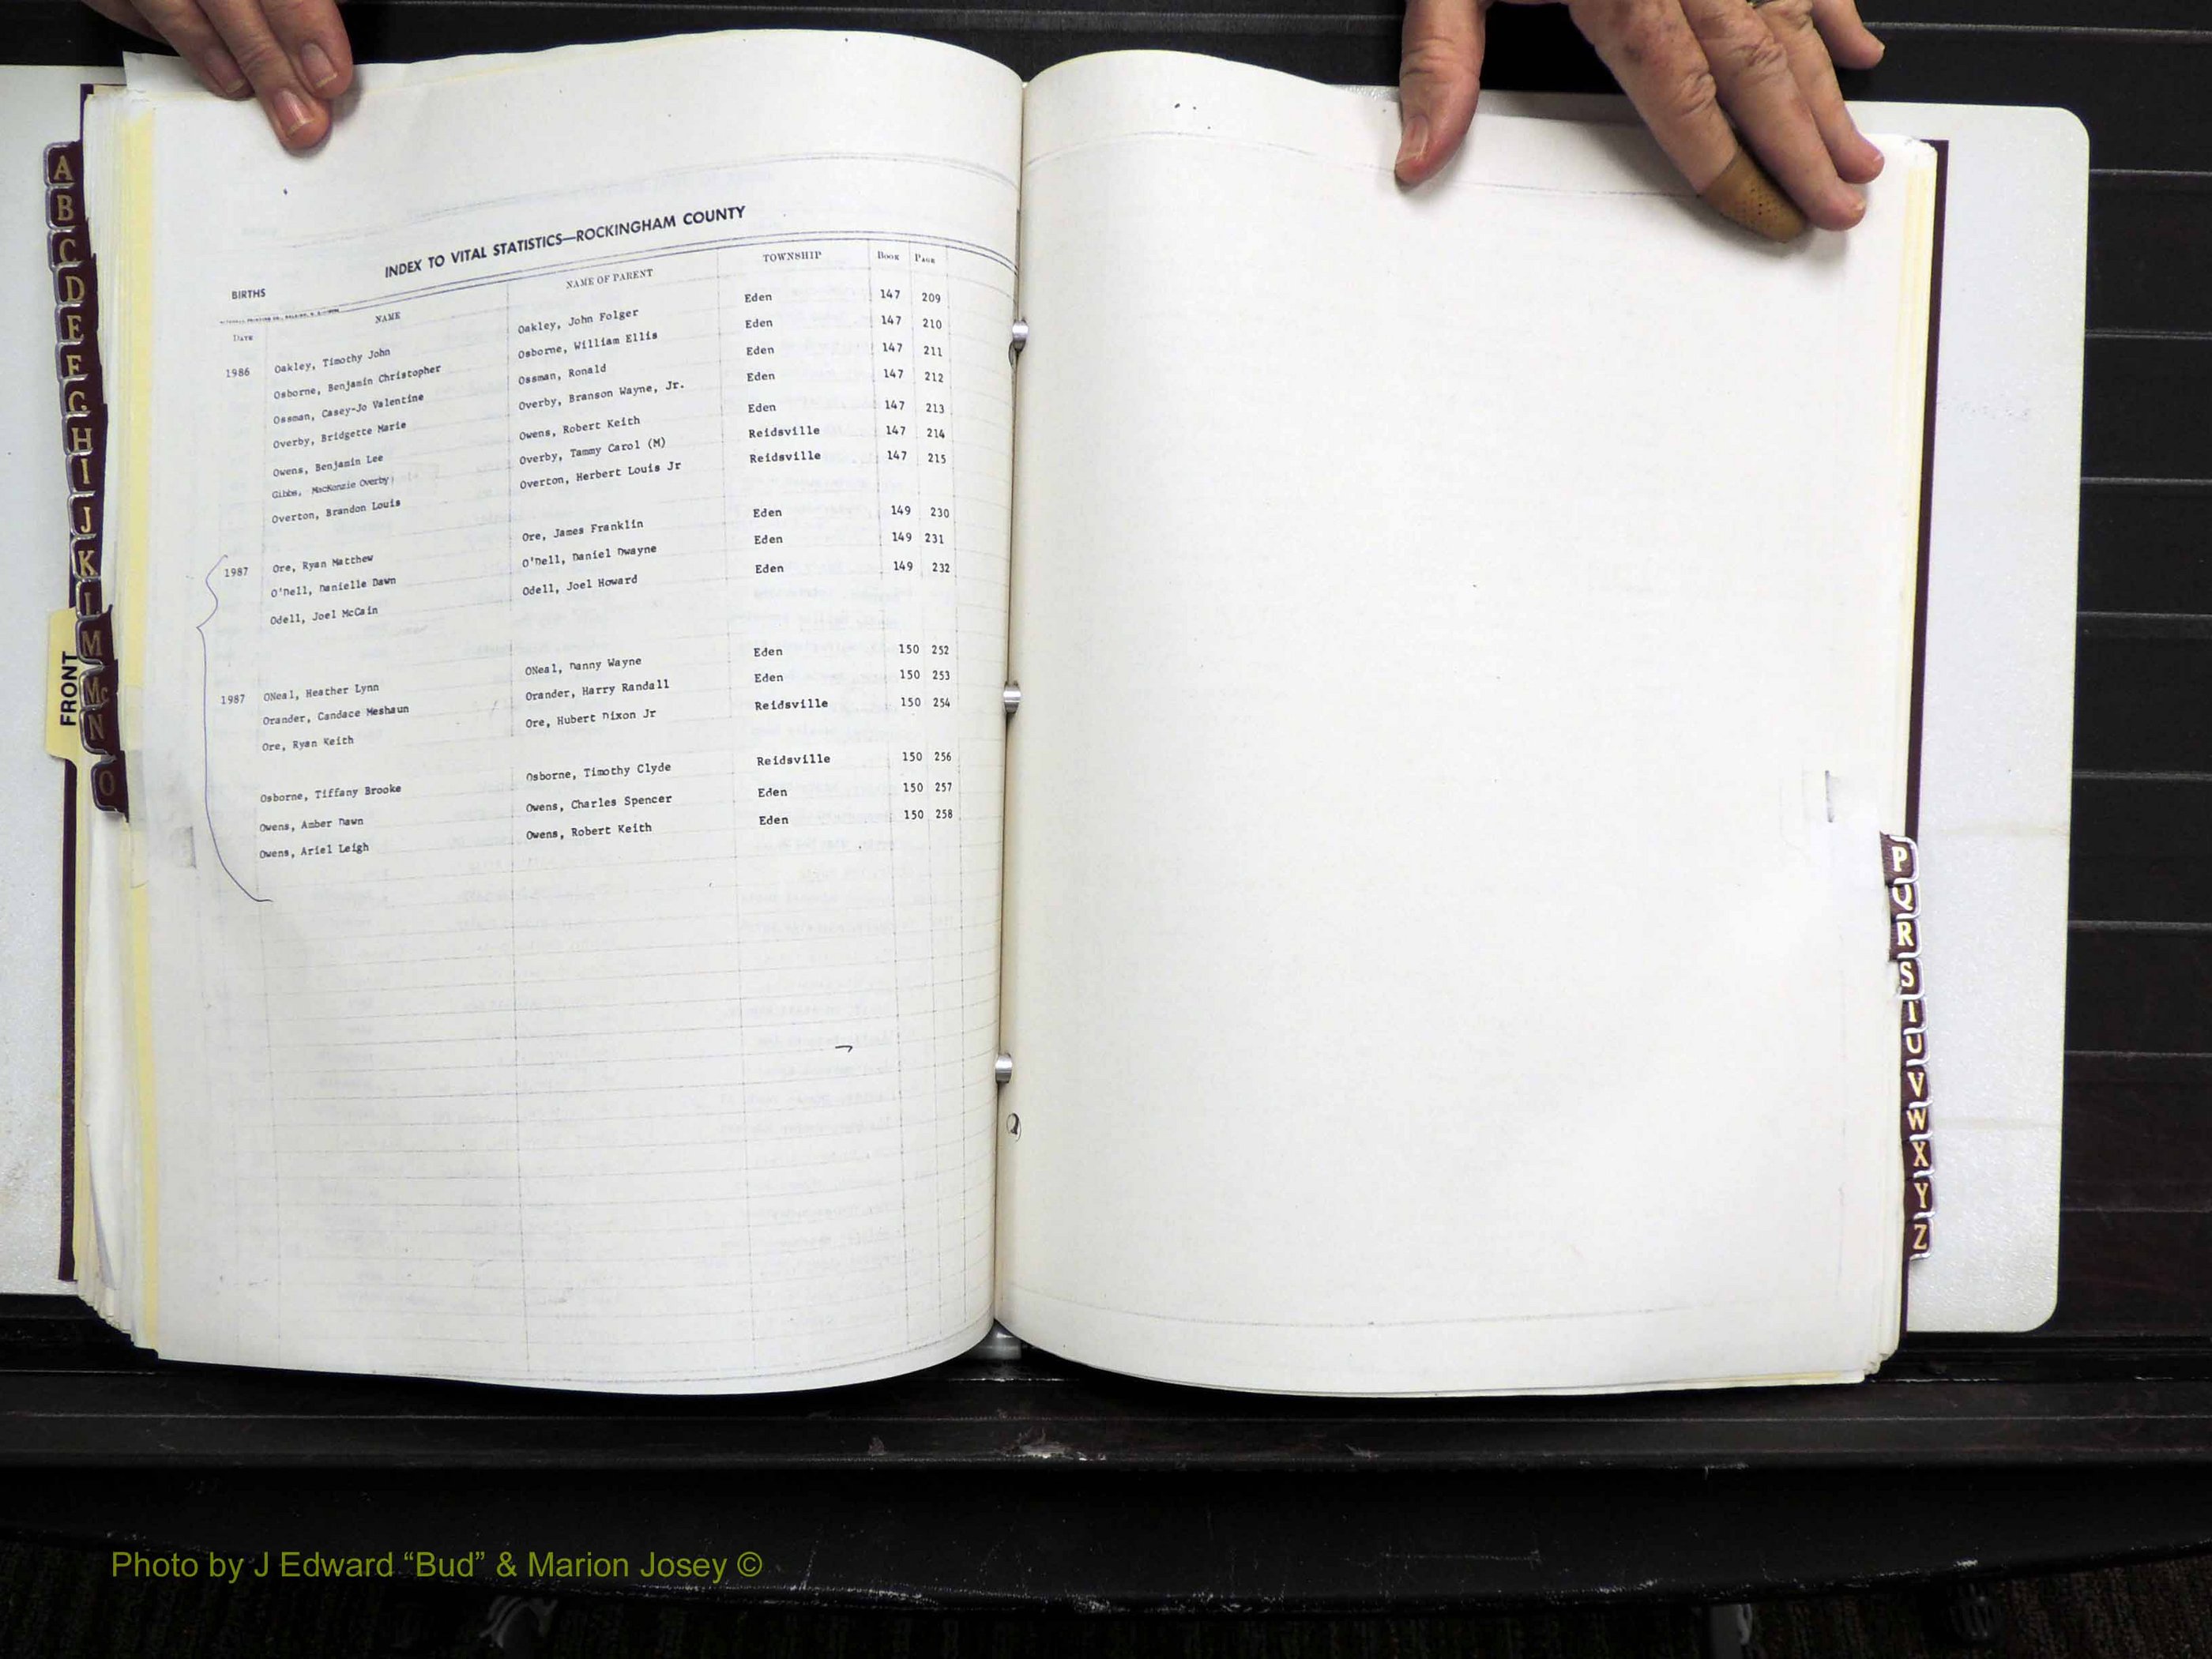 INDEX TO VITAL STATISTICS—ROCKINGHAM COUNTY
BIRTHS
DATE NAME NAME OF PARENT TOWNSHIP BOOK PAGE
1986 Oakley, Timothy John Oakley, John Folger Eden 147 209
Osborne, Benjamin Christopher Osborne, William Ellis Eden 147 210
Ossman, Casey-Jo Valentine Ossman, Ronald Eden 147 211
Overby, Bridgette Marie Overby, Branson Wayne, Jr. Eden 147 212
Owens, Benjamin Lee Owens, Robert Keith Eden 147 213
Gibbs, MacKenzie Overby Overby, Tammy Carol (M) Reidsville 147 214
Overton, Brandon Louis Overton, Herbert Louis Jr Reidsville 147 215
1987 Ore, Ryan Matthew Ore, James Franklin Eden 149 230
O'Dell, Danielle Dawn O'Dell, Daniel Dwayne Eden 149 231
Odell, Joel McCain Odell, Joel Howard Eden 149 232
1987 ONeal, Heather Lynn ONeal, Danny Wayne Eden 150 252
Orander, Candace Meshaun Orander, Harry Randall Eden 150 253
Ore, Ryan Keith Ore, Hubert Dixon Jr Reidsville 150 254
Osborne, Tiffany Brooke Osborne, Timothy Clyde Reidsville 150 256
Owens, Amber Dawn Owens, Charles Spencer Eden 150 257
Owens, Ariel Leigh Owens, Robert Keith Eden 150 258
A
B
C
D
E
F
G
H
I
J
K
L
M
Mc
N
O
FRONT
P
Q
R
S
T
U
V
W
X
Y
Z
Photo by J Edward “Bud” & Marion Josey ©